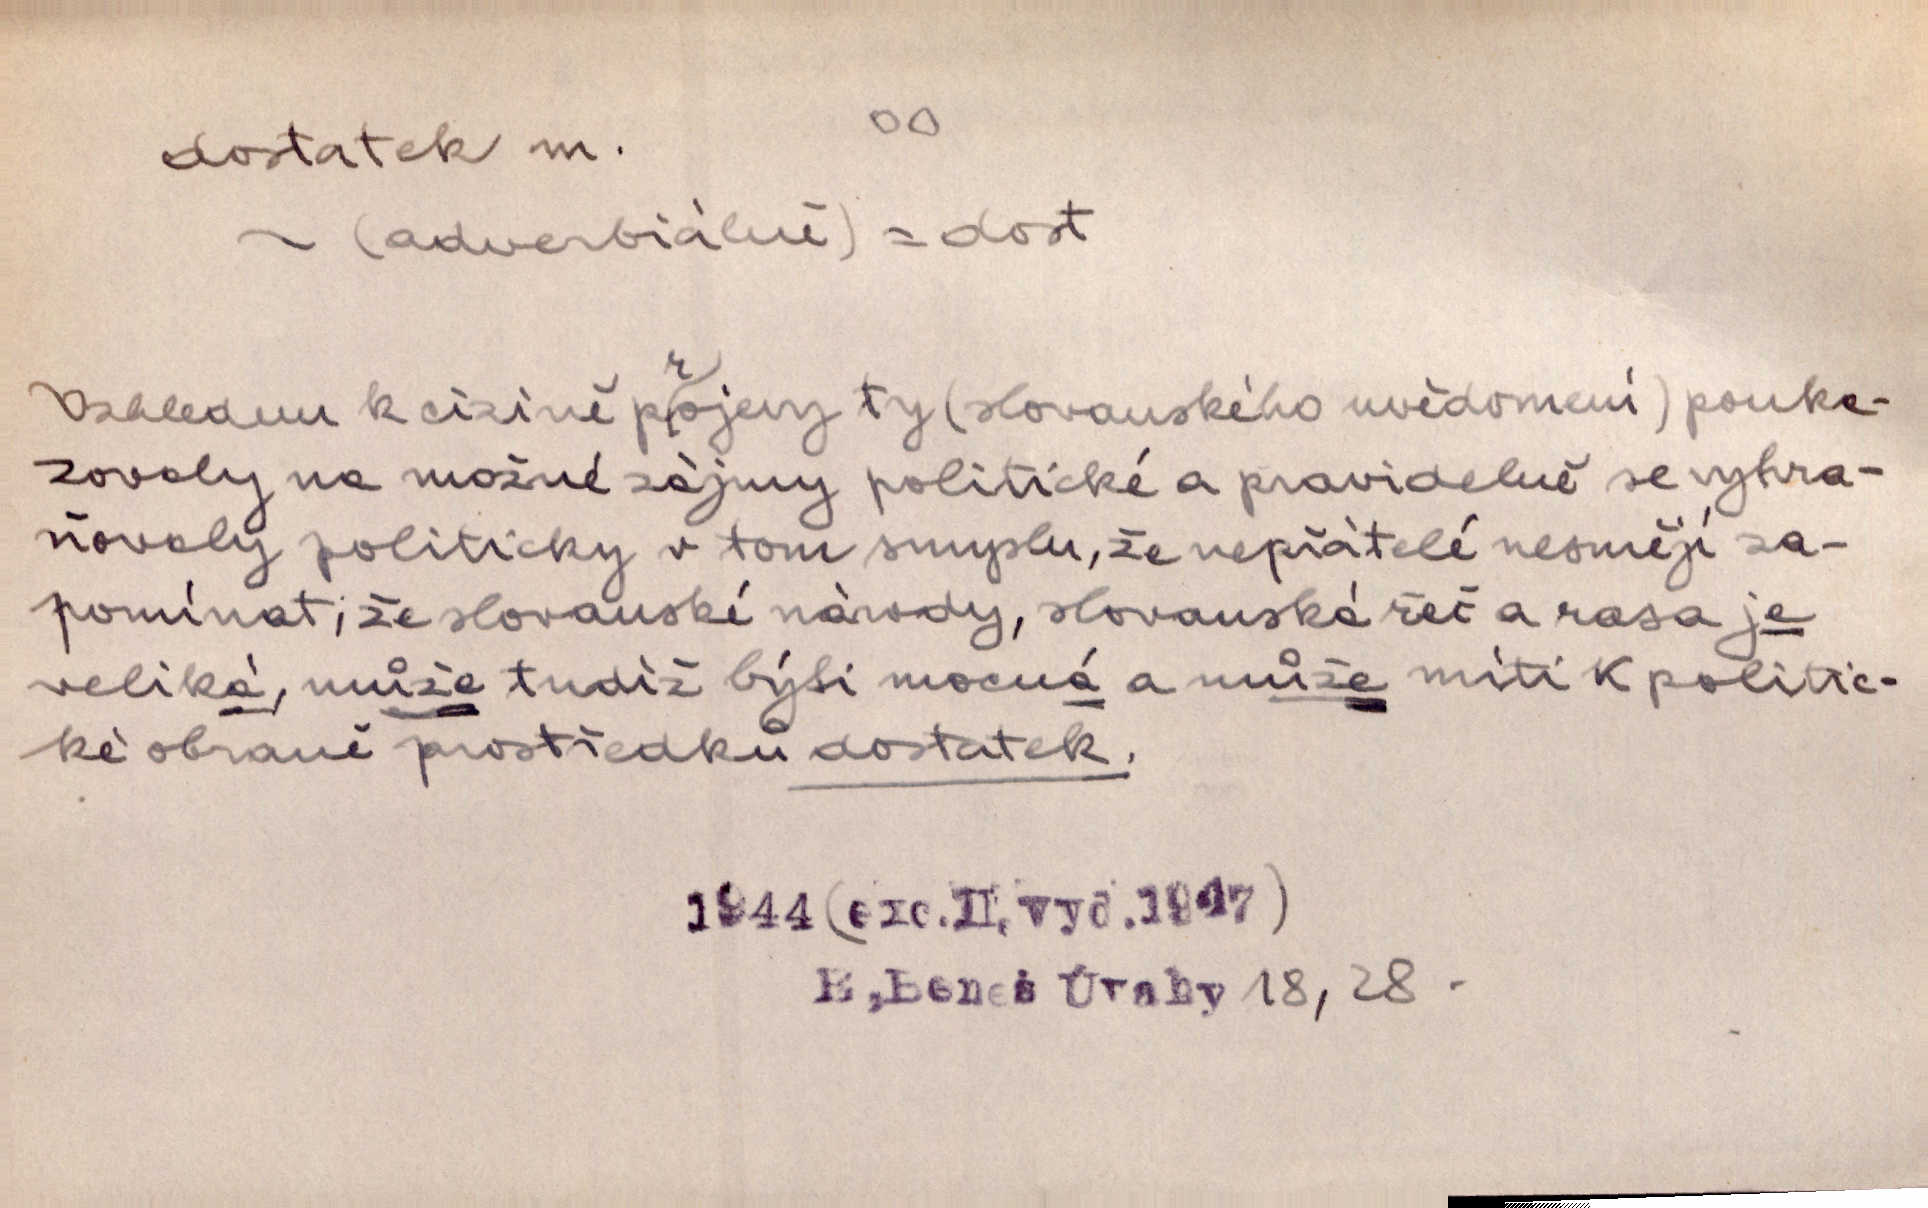 dostatek m.
~ (adverbiálně) = dost
Vzhledem k cizině projevy ty (slovanského uvědomení) pouka-
zovaly na možné zájmy politické a pravidelně se vyhra-
ňovaly politicky v tom smyslu, že nepřátelé nesmějí za-
pomínat, že slovanské národy, slovanská řeč a rasa je
veliká, může tudíž býti mocná a může míti k politic-
ké obraně prostředků dostatek.
1944 (exc. II. vyd. 1947)
E. Beneš Úvahy 18, 28.